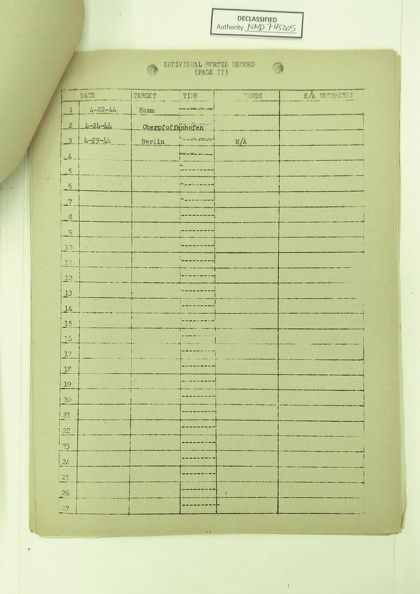 DECLASSIFIED
Authority NND 745005
INDIVIDUAL SORTIE RECORD
(PAGE II)
DATE TARGET TIME
1 4-22-44 Hamm
2 4-24-44 Oberpfoffenhofen
3 4-29-44 Berlin N/A
4
5
6
7
8
9
10
11
12
13
14
15
16
17
18
19
20
21
22
23
24
25
26
27